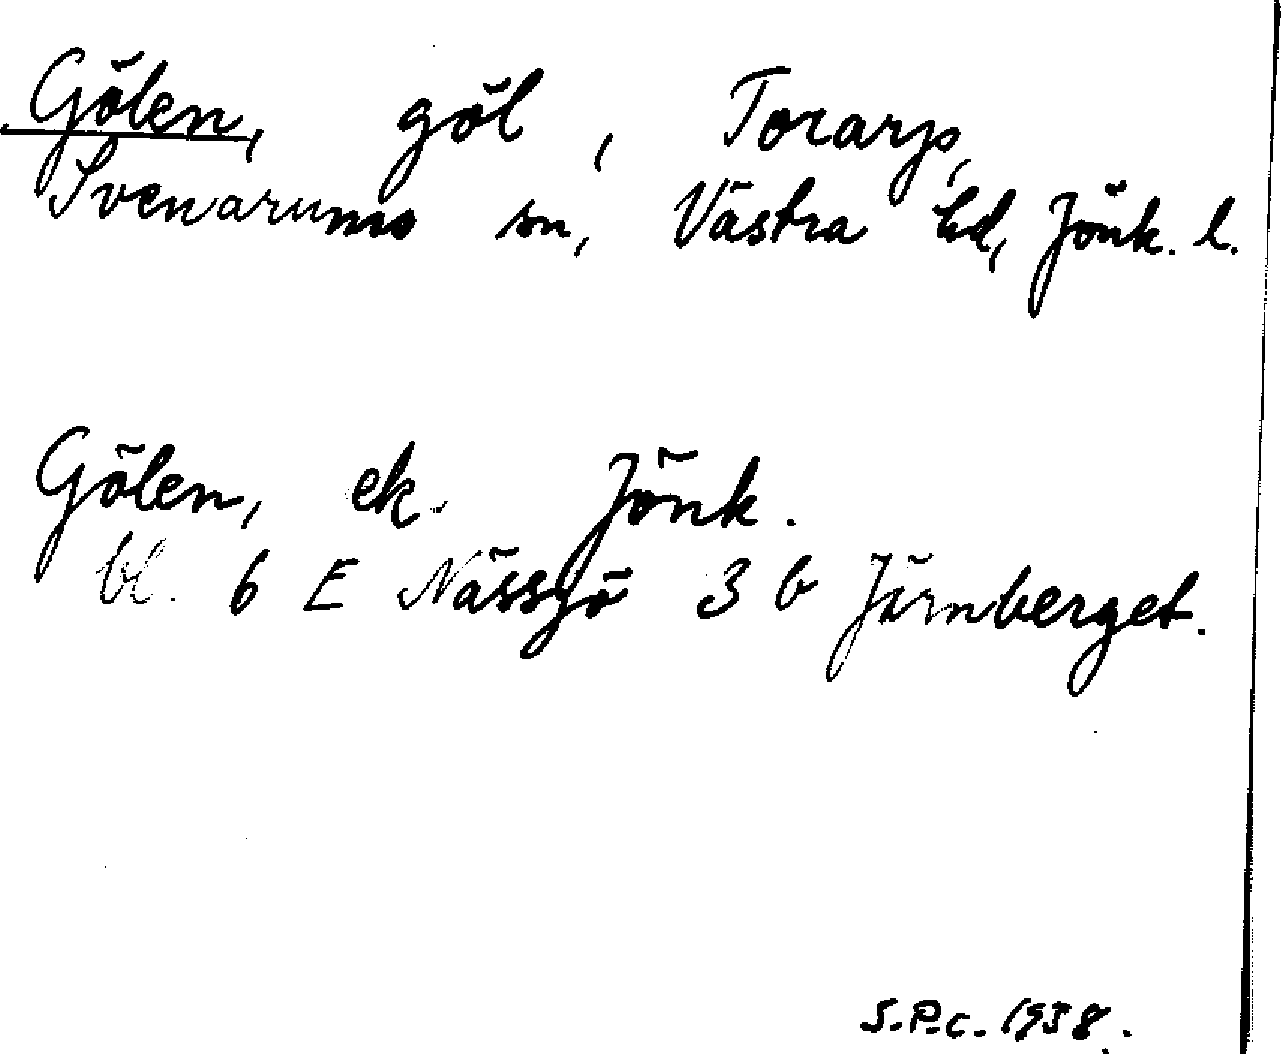 Gölen, göl, Torarp,
Svenarums sn, Västra hd, Jönk. l.
Gölen, ek. Jönk.
bl. 6 E Nässjö 3 b Järnberget.
S.P.C. 1958.